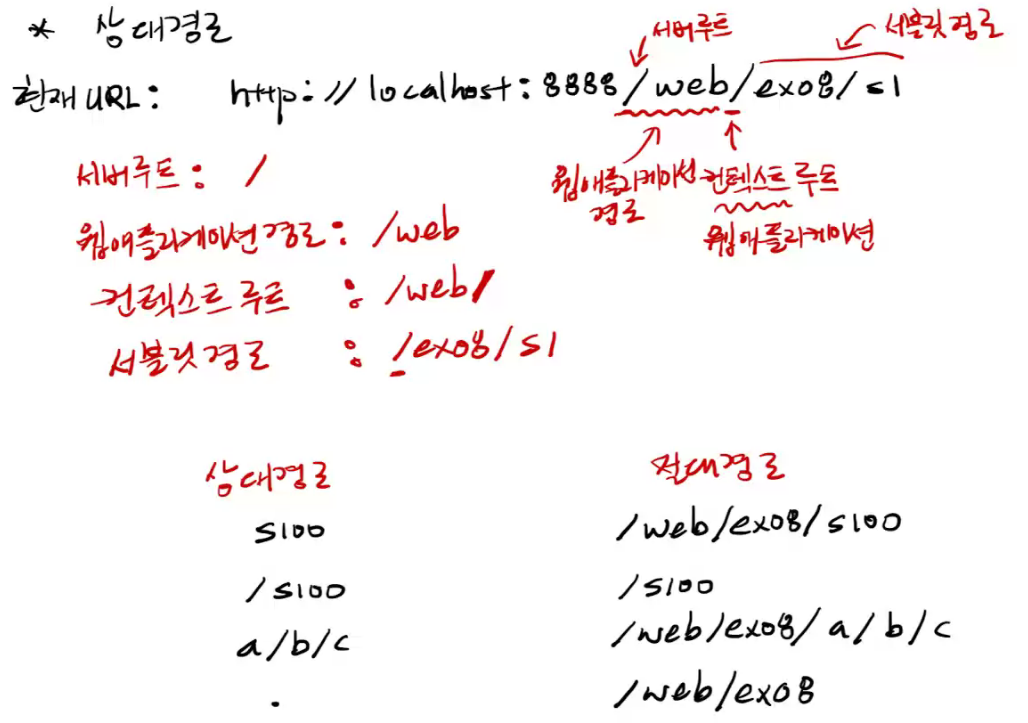 * 상대경로
서버루트 서블릿경로
현재 URL: http://localhost:8888/web/ex08/s1
웹애플리케이션 경로
컨텍스트 루트
웹애플리케이션
서버루트: /
웹애플리케이션 경로: /web
컨텍스트 루트 : /web/
서블릿 경로 : /ex08/s1
상대경로 절대경로
s100 /web/ex08/s100
/s100 /s100
a/b/c /web/ex08/a/b/c
. /web/ex08